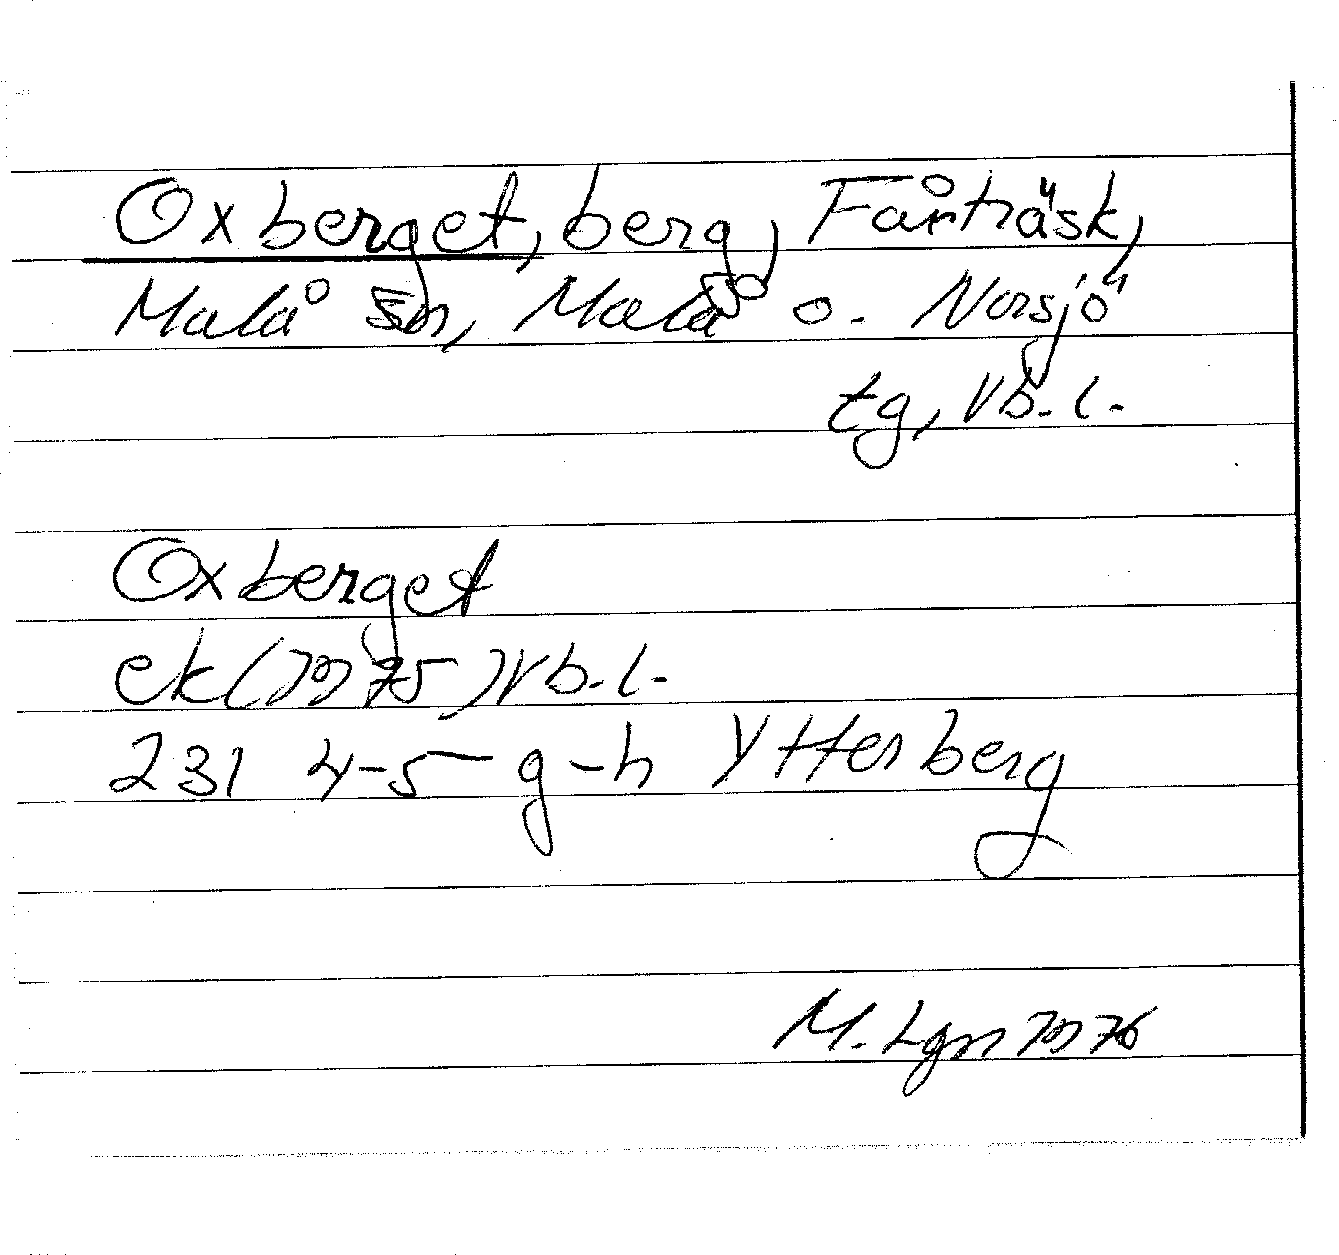 Oxberget, berg, Fårträsk,
Malå sn, Malå o. Norsjö
tg, Vb. l.
Oxberget
ek (1975) Vb. l.
231 4-5 g-h Ytterberg
M. Lgn 1976